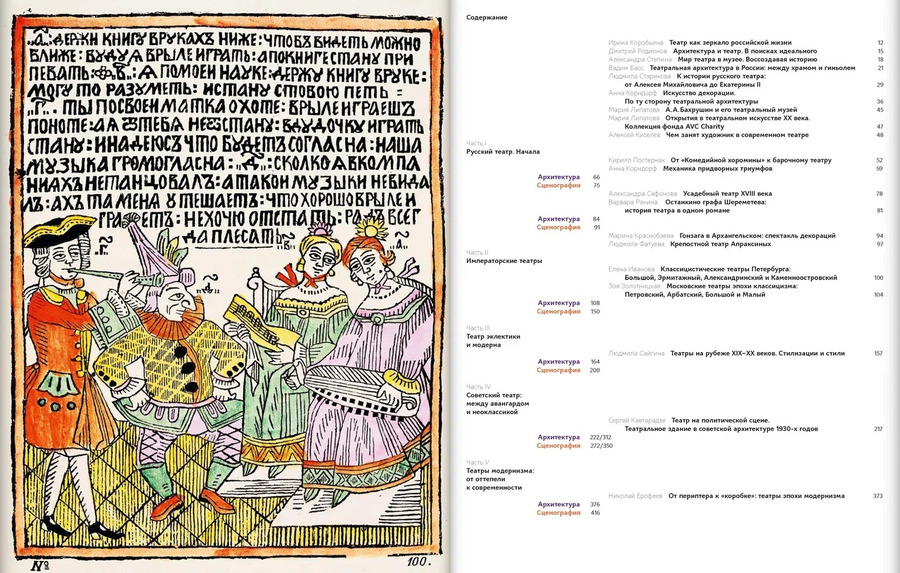 А. ДЕРЖИ КНИГУ ВРУКАХЪ НИЖЕ: ЧТОБЪ ВИДЕТЬ МОЖНО
БЛИЖЕ: БУДУ Ꙗ ВРЫЛЕ ИГРАТЬ: АПОКНИГЕ СТАНУ ПРИ
ПЕВАТЬ: В: Ꙗ ПОМОЕИ НАУКЕ: ДЕРЖУ КНИГУ ВРУКЕ:
МОГУ ТО РАЗУМЕТЬ: ИСТАНУ СТОБОЮ ПЕТЬ =
Г. ТЫ ПОСВОЕИ МАТКА ОХОТЕ: ВРЫЛЕ ИГРАЕШЪ
ПОНОТЕ: АѦ ѾТЕБѦ НЕѾСТАНУ: ВДУДОЧКУ ИГРАТЬ
СТАНУ: ИНАДЕЮСЪ ЧТО БУДЕТЪ СОГЛАСНА: НАША
МУЗЫКА ГРОМОГЛАСНА: Д: СКОЛКО Ѧ ВКОМПА
НИѦХЪ НЕТАНЦОВАЛЪ: АТАКОИ МУЗЫКИ НЕВИДА
ЛЪ: АХЪ ТА МЕНѦ УТЕШАЕТЪ: ЧТО ХОРОШО ВРЫЛЕ И
ГРАЕТЪ: НЕХОЧЮ ОТСТАТЬ: РАДЪ ВСЕГ
ДА ПЛЕСАТЬ
Г
Д
В
А
№
100.
Содержание
Ирина Коробьина Театр как зеркало российской жизни 12
Дмитрий Родионов Архитектура и театр. В поисках идеального 15
Александра Степина Мир театра в музее. Воссоздавая историю 18
Вадим Басс Театральная архитектура в России: между храмом и гиньолем 21
Людмила Старикова К истории русского театра:
от Алексея Михайловича до Екатерины II 29
Анна Корндорф Искусство декорации.
По ту сторону театральной архитектуры 36
Мария Липатова А.А.Бахрушин и его театральный музей 45
Мария Липатова Открытия в театральном искусстве XX века.
Коллекция фонда AVC Charity 47
Алексей Киселев Чем занят художник в современном театре 48
Часть I
Русский театр. Начала
Кирилл Постернак От «Комедийной хоромины» к барочному театру 52
Анна Корндорф Механика придворных триумфов 59
Архитектура 66
Сценография 75
Александра Сафонова Усадебный театр XVIII века 78
Варвара Ракина Останкино графа Шереметева:
история театра в одном романе 81
Архитектура 84
Сценография 91
Марина Краснобаева Гонзага в Архангельском: спектакль декораций 94
Людмила Фатуева Крепостной театр Апраксиных 97
Часть II
Императорские театры
Елена Иванова Классицистические театры Петербурга:
Большой, Эрмитажный, Александринский и Каменноостровский 100
Зоя Золотницкая Московские театры эпохи классицизма:
Петровский, Арбатский, Большой и Малый 104
Архитектура 108
Сценография 150
Часть III
Театр эклектики
и модерна
Людмила Сайгина Театры на рубеже XIX–XX веков. Стилизации и стили 157
Архитектура 164
Сценография 200
Часть IV
Советский театр:
между авангардом
и неоклассикой
Сергей Кавтарадзе Театр на политической сцене.
Театральное здание в советской архитектуре 1930-х годов 217
Архитектура 222/312
Сценография 272/350
Часть V
Театры модернизма:
от оттепели
к современности
Николай Ерофеев От периптера к «коробке»: театры эпохи модернизма 373
Архитектура 376
Сценография 416